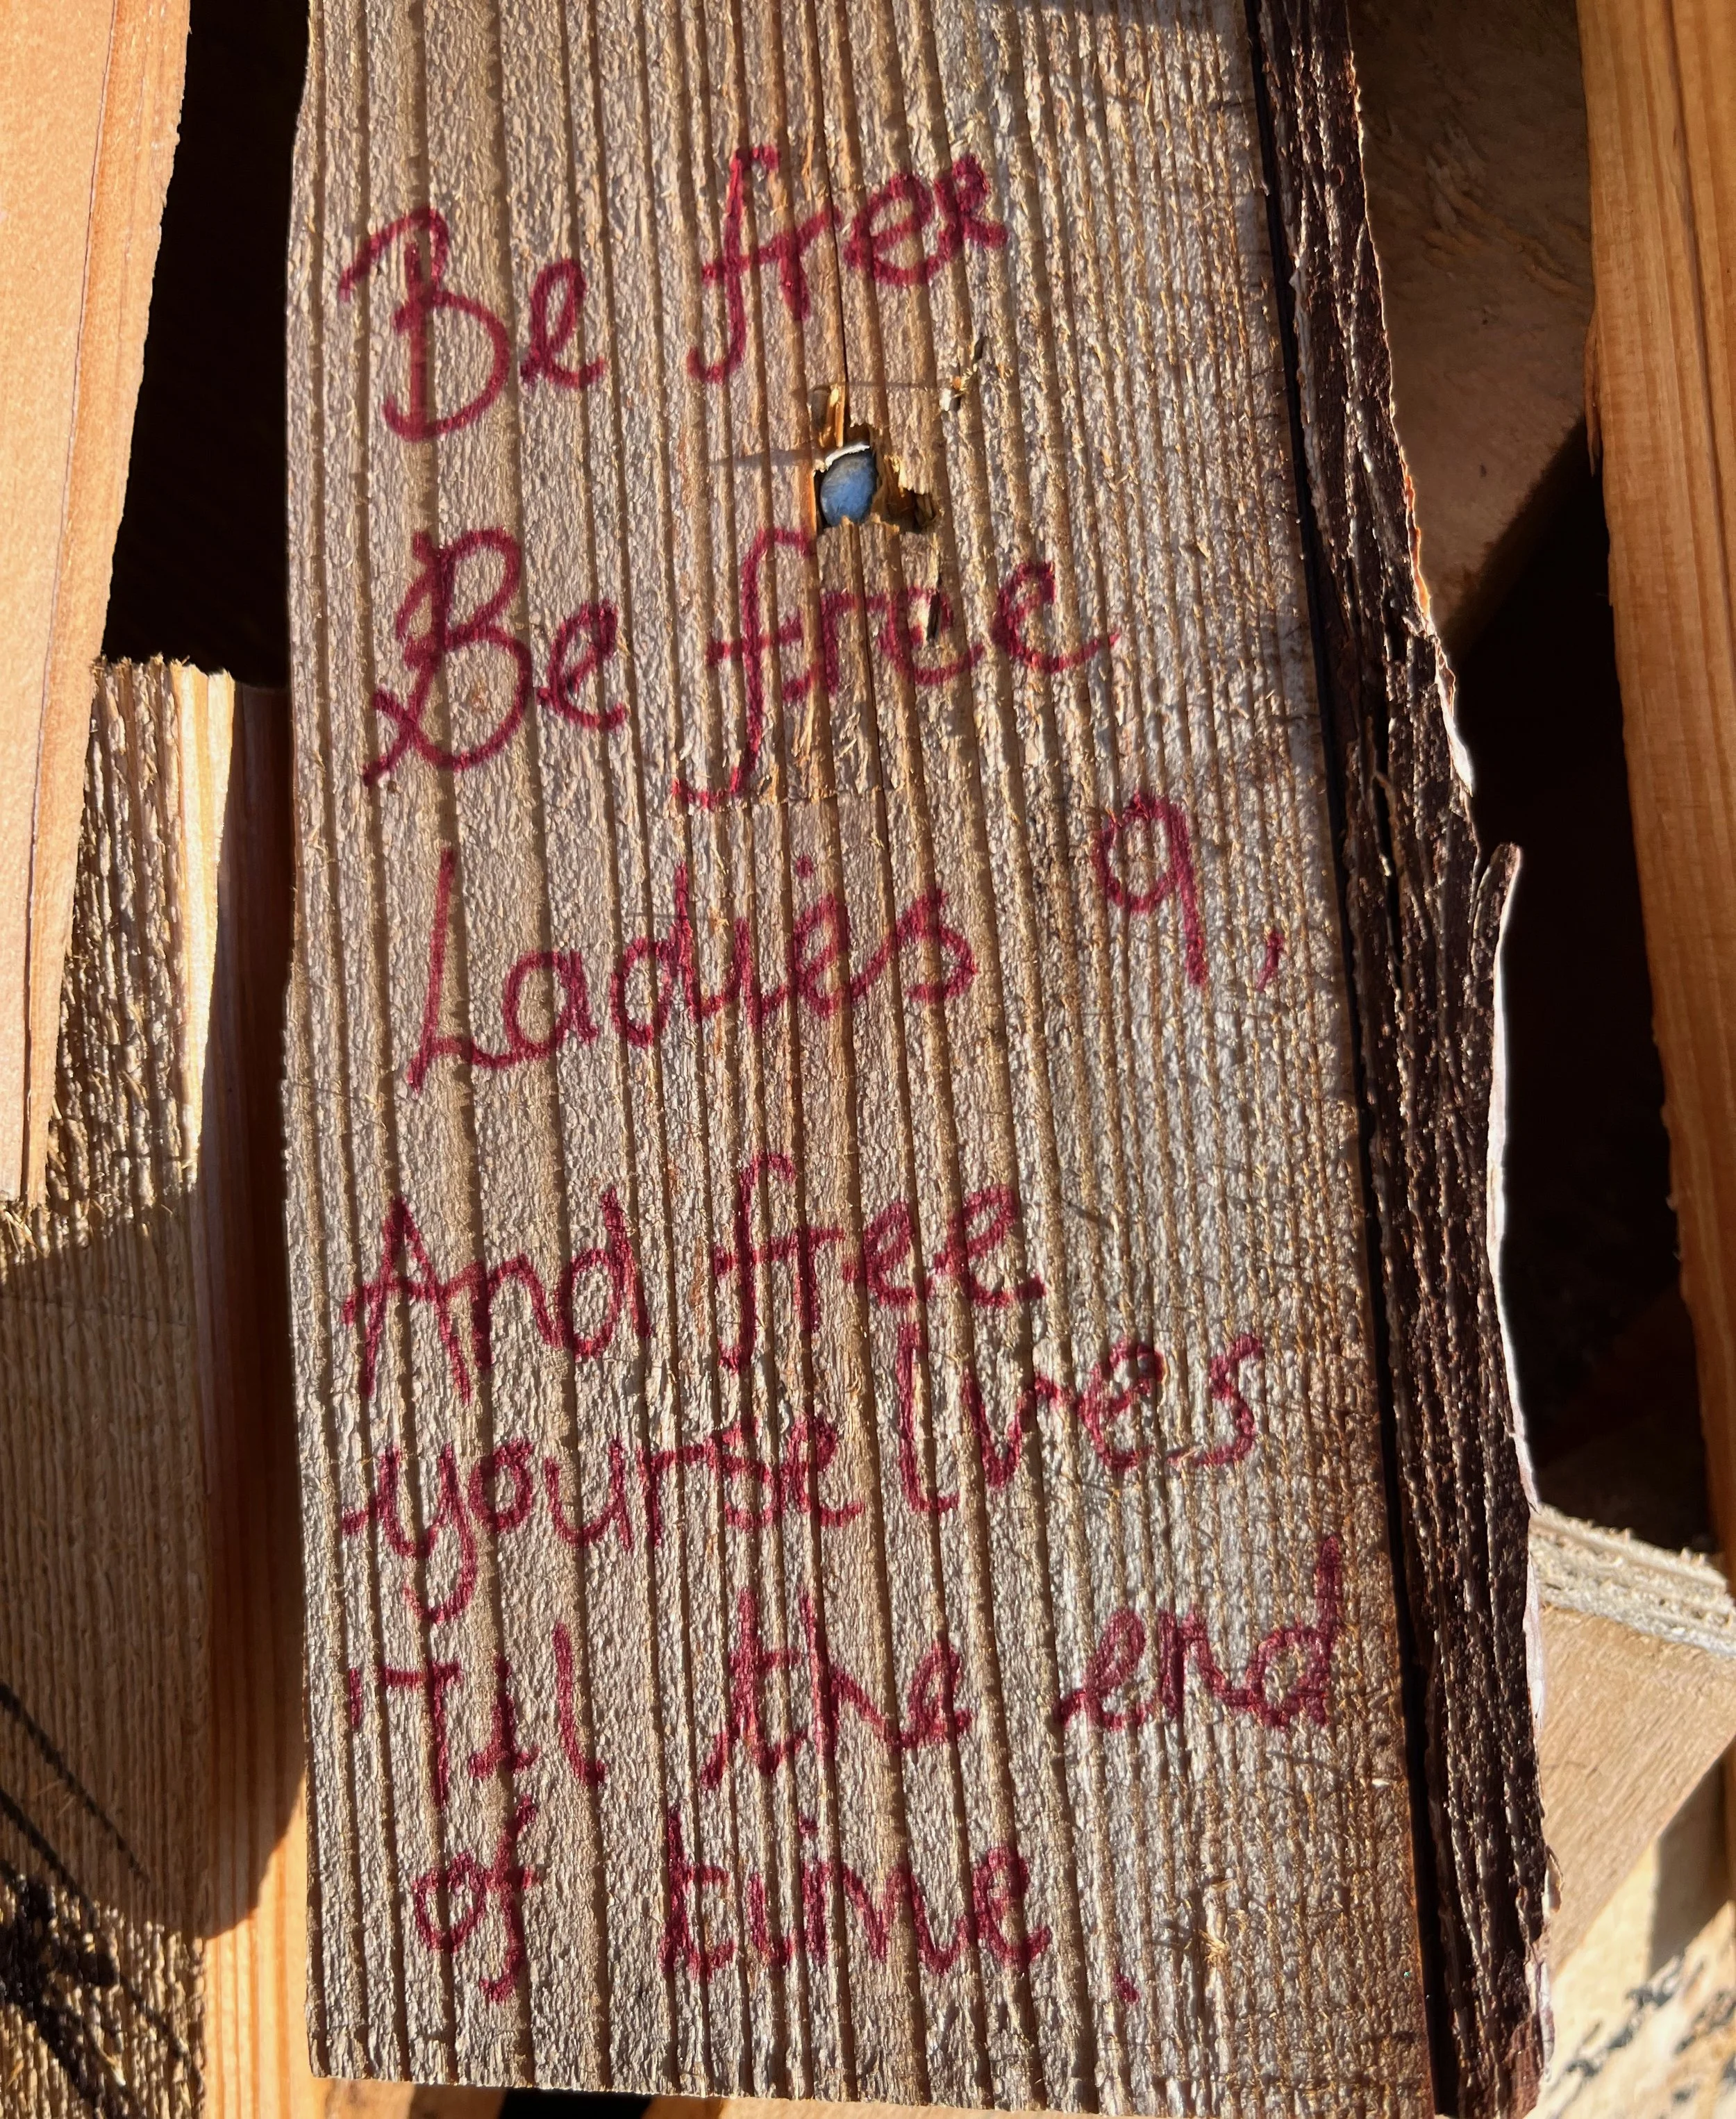 Be free
Be free
Ladies 9,
And free
yourselves
'Til the end
of time.